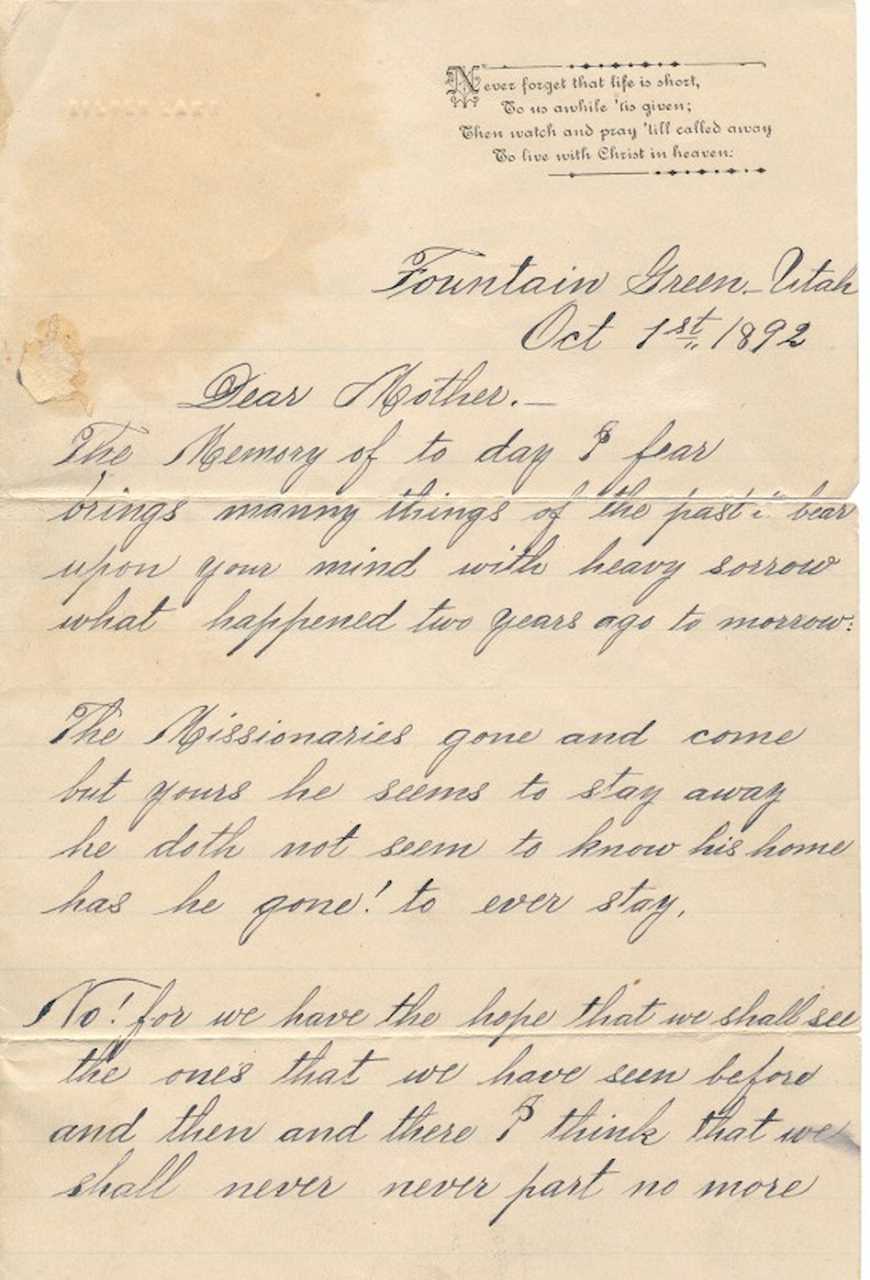 Never forget that life is short,
To us awhile 'tis given;
Then watch and pray 'till called away
To live with Christ in heaven:
Fountain Green - Utah
Oct 1st 1892
Dear Mother. —
The Memory of to day I fear
brings manny things of the past bear
upon your mind with heavy sorrow
what happened two years ago to morrow:
The Missionaries gone and come
but yours he seems to stay away
he doth not seem to know his home
has he gone! to ever stay.
No! for we have the hope that we shall see
the ones that we have seen before
and then and there I think that we
shall never never part no more